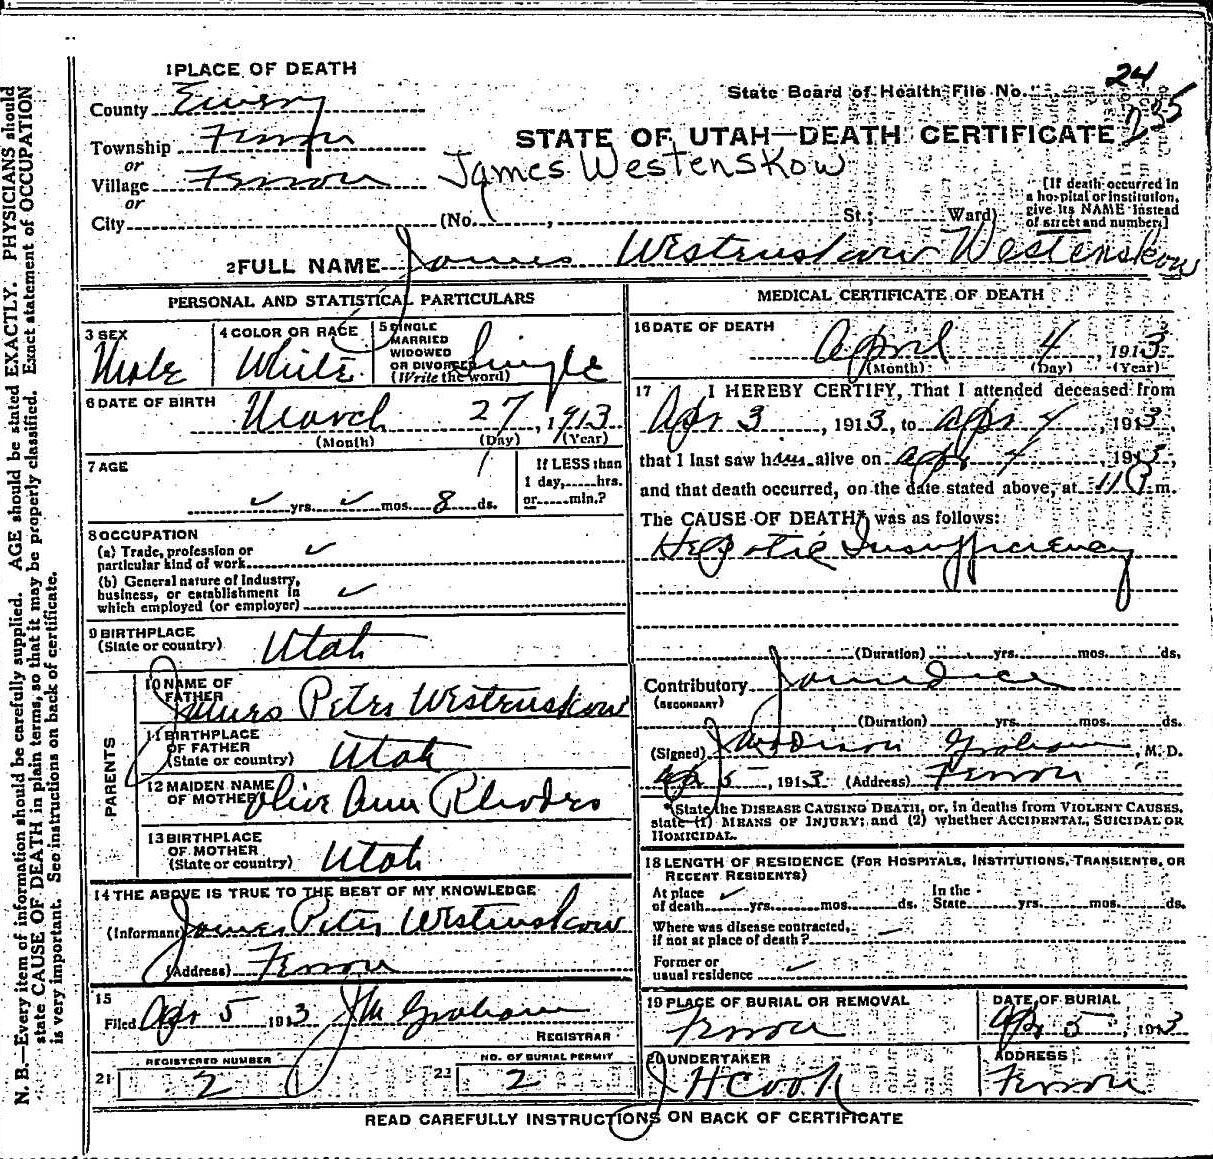 1 PLACE OF DEATH
County Emery
Township Ferron
or
Village Ferron
or
City
State Board of Health File No. 24
235
STATE OF UTAH—DEATH CERTIFICATE
James Westenskow
(No. , St.; Ward)
[If death occurred in
a hospital or institution,
give its NAME instead
of street and number.]
2 FULL NAME James Westenskow Westenskow
PERSONAL AND STATISTICAL PARTICULARS
3 SEX
Male
4 COLOR OR RACE
White
5 SINGLE
MARRIED
WIDOWED
OR DIVORCED
(Write the word)
Single
6 DATE OF BIRTH
March 27, 1913
(Month) (Day) (Year)
7 AGE
✓ yrs. ✓ mos. 8 ds.
If LESS than
1 day, hrs.
or min.?
8 OCCUPATION
(a) Trade, profession or
particular kind of work ✓
(b) General nature of Industry,
business, or establishment in
which employed (or employer) ✓
9 BIRTHPLACE
(State or country) Utah
PARENTS
10 NAME OF
FATHER
James Peter Westenskow
11 BIRTHPLACE
OF FATHER
(State or country) Utah
12 MAIDEN NAME
OF MOTHER Olive Ann Rhodes
13 BIRTHPLACE
OF MOTHER
(State or country) Utah
14 THE ABOVE IS TRUE TO THE BEST OF MY KNOWLEDGE
(Informant James Peter Westenskow
(Address) Ferron
15
Filed Apr 5 1913 J W Graham
REGISTRAR
REGISTERED NUMBER
21 2
NO. OF BURIAL PERMIT
22 2
MEDICAL CERTIFICATE OF DEATH
16 DATE OF DEATH
April 4, 1913
(Month) (Day) (Year)
17 I HEREBY CERTIFY, That I attended deceased from
Apr 3, 1913, to Apr 4, 1913,
that I last saw him alive on Apr 4, 1913,
and that death occurred, on the date stated above, at 11 P m.
The CAUSE OF DEATH* was as follows:
Hepatic Insufficiency
(Duration) yrs. mos. ds.
Contributory Jaundice
(SECONDARY)
(Duration) yrs. mos. ds.
(Signed) J Graham, M. D.
Apr 5, 1913 (Address) Ferron
*State the DISEASE CAUSING DEATH, or, in deaths from VIOLENT CAUSES,
state (1) MEANS OF INJURY; and (2) whether ACCIDENTAL, SUICIDAL OR
HOMICIDAL.
18 LENGTH OF RESIDENCE (FOR HOSPITALS, INSTITUTIONS, TRANSIENTS, OR
RECENT RESIDENTS)
At place
of death ✓ yrs. mos. ds.
In the
State yrs. mos. ds.
Where was disease contracted,
if not at place of death? —
Former or
usual residence ✓
19 PLACE OF BURIAL OR REMOVAL
Ferron
DATE OF BURIAL
Apr 5, 1913
20 UNDERTAKER
J H Cook
ADDRESS
Ferron
READ CAREFULLY INSTRUCTIONS ON BACK OF CERTIFICATE
N. B.—Every item of information should be carefully supplied. AGE should be stated EXACTLY. PHYSICIANS should
state CAUSE OF DEATH in plain terms, so that it may be properly classified. Exact statement of OCCUPATION
is very important. See instructions on back of certificate.